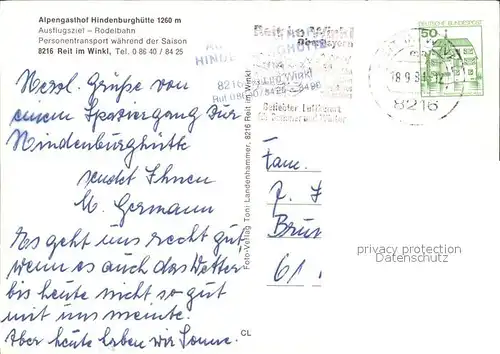 Alpengasthof Hindenburghütte 1260 m
Ausflugsziel – Rodelbahn
Personentransport während der Saison
8216 Reit im Winkl, Tel. 0 86 40 / 84 25
Herzl. Grüße von
einem Spaziergang zur
Hindenburghütte
sendet Ihnen
M. Germann
Es geht uns recht gut,
wenn es auch das Wetter
bis heute nicht so gut
mit uns meinte.
Aber heute haben wir Sonne.
HINDENBURGHÜTTE
8216 Reit im Winkl
Reit im Winkl
Oberbayern
Beliebter Luftkurort
für Sommer und Winter
DEUTSCHE BUNDESPOST
50
18.9.8
8216
Foto-Verlag Toni Landenhammer, 8216 Reit im Winkl
CL
Fam.
J.
61
privacy protection
Datenschutz